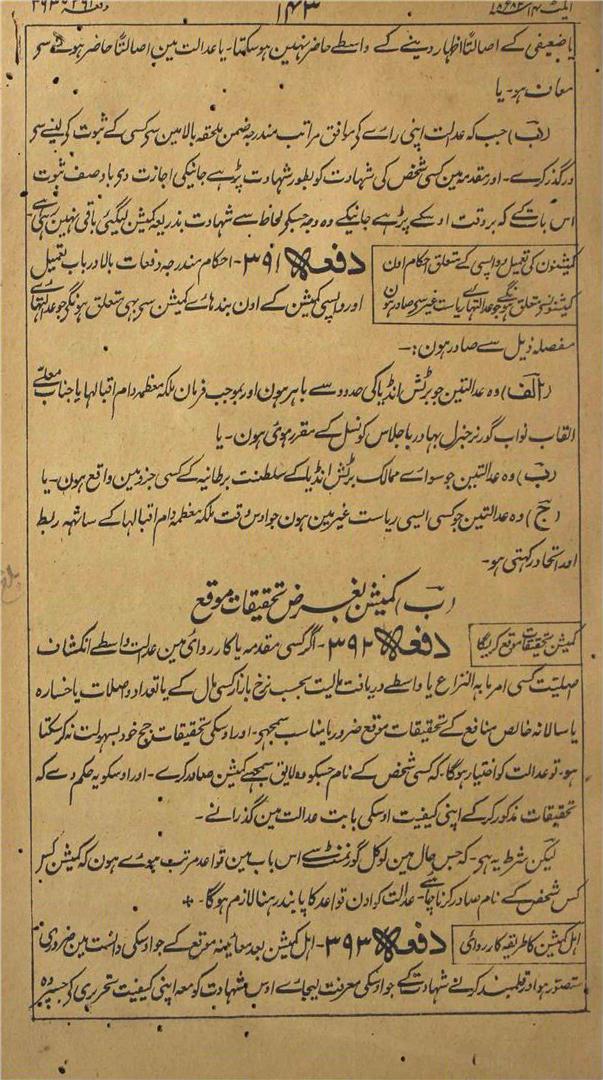 ایکٹ ۱۴ ۱۸۸۲ء ۱۴۳ دفعہ ۳۹۱ ۳۹۲ ۳۹۳
یا ضعیفی کے اصالتًا اظہار دینے کے واسطے حاضر نہین ہو سکتا۔ یا عدالت مین اصالتًا حاضر ہونے سے
معاف ہو۔ یا
(ب) جب کہ عدالت اپنی راے کے موافق مراتب مندرجہ ضمن ملحقہ بالا مین سے کسی کے ثبوت کو لینے سے
درگذر کرے۔ اور مقدمہ مین کسی شخص کی شہادت کو بطور شہادت پڑہے جانیکی اجازت دے باوصف ثبوت
اس بات کے کہ بروقت اوسکے پڑہے جانیکے وہ وجہ جسکے لحاظ سے شہادت بذریعہ کمیشن لیگئی باقی نہین رہی ہے۔
کمیشنون کی تعمیل و واپسی کے متعلق احکام اون
کمیشنو نسے متعلق ہونگے جو عدالتہاے ریاست غیر سے صادر ہون
دفعہ ۳۹۱۔ احکام مندرجہ دفعات بالا درباب تعمیل
اور واپسی کمیشن کے اون بندہاے کمیشن سے بہی متعلق ہونگے جو عدالتہاے
مفصلہ ذیل سے صادر ہون:۔
(الف) وہ عدالتین جو برٹش انڈیا کی حدود سے باہر ہون اور بموجب فرمان ملکہ معظمہ دام اقبالہا یا جناب معلے
القاب نواب گورنر جنرل بہادر باجلاس کونسل کے مقرر ہوئی ہون۔ یا
(ب) وہ عدالتین جو سواے ممالک برٹش انڈیا کے سلطنت برطانیہ کے کسی جزو مین واقع ہون۔ یا
(ج) وہ عدالتین جو کسی ایسی ریاست غیر مین ہون جو اوس وقت ملکہ معظمہ دام اقبالہا کے ساتھہ ربط
اور اتحاد رکہتی ہو۔
(ب) کمیشن بغرض تحقیقات موقع
کمیشن تحقیقات موقع کریگا
دفعہ ۳۹۲۔ اگر کسی مقدمہ یا کارروائی مین عدالت واسطے انکشاف
اصلیت کسی امر مابہ النزاع یا واسطے دریافت مالیت بحسب نرخ بازار کسی مال کے یا تعداد واصلات یا خسارہ
یا سالانہ خالص منافع کے تحقیقات موقع ضرور یا مناسب سمجہے۔ اور اوسکی تحقیقات جج خود بسہولت نہ کر سکتا
ہو۔ تو عدالت کو اختیار ہوگا۔ کہ کسی شخص کے نام جسکو وہ لایق سمجہے کمیشن صادر کرے۔ اور اوسکو یہ حکم دے کہ
تحقیقات مذکور کر کے اپنی کیفیت اوسکی بابت عدالت مین گذرانے۔
لیکن شرط یہ ہے۔ کہ جس حال مین لوکل گورنمنٹ سے اس باب مین قواعد مرتب ہوے ہون کہ کمیشن کس
کس شخص کے نام صادر کرنا چاہئے۔ عدالت کو ان قواعد کا پابند رہنا لازم ہوگا۔ +
اہل کمیشن کا طریقہ کارروائی
دفعہ ۳۹۳۔ اہل کمیشن بعد معائینہ موقع کے جو اوسکی دانست مین ضروری
متصور ہو اور قلمبند کرنے شہادت کے جو اوسکی معرفت لیجاے اوس شہادت کو معہ اپنی کیفیت تحریری کے جسپر وہ